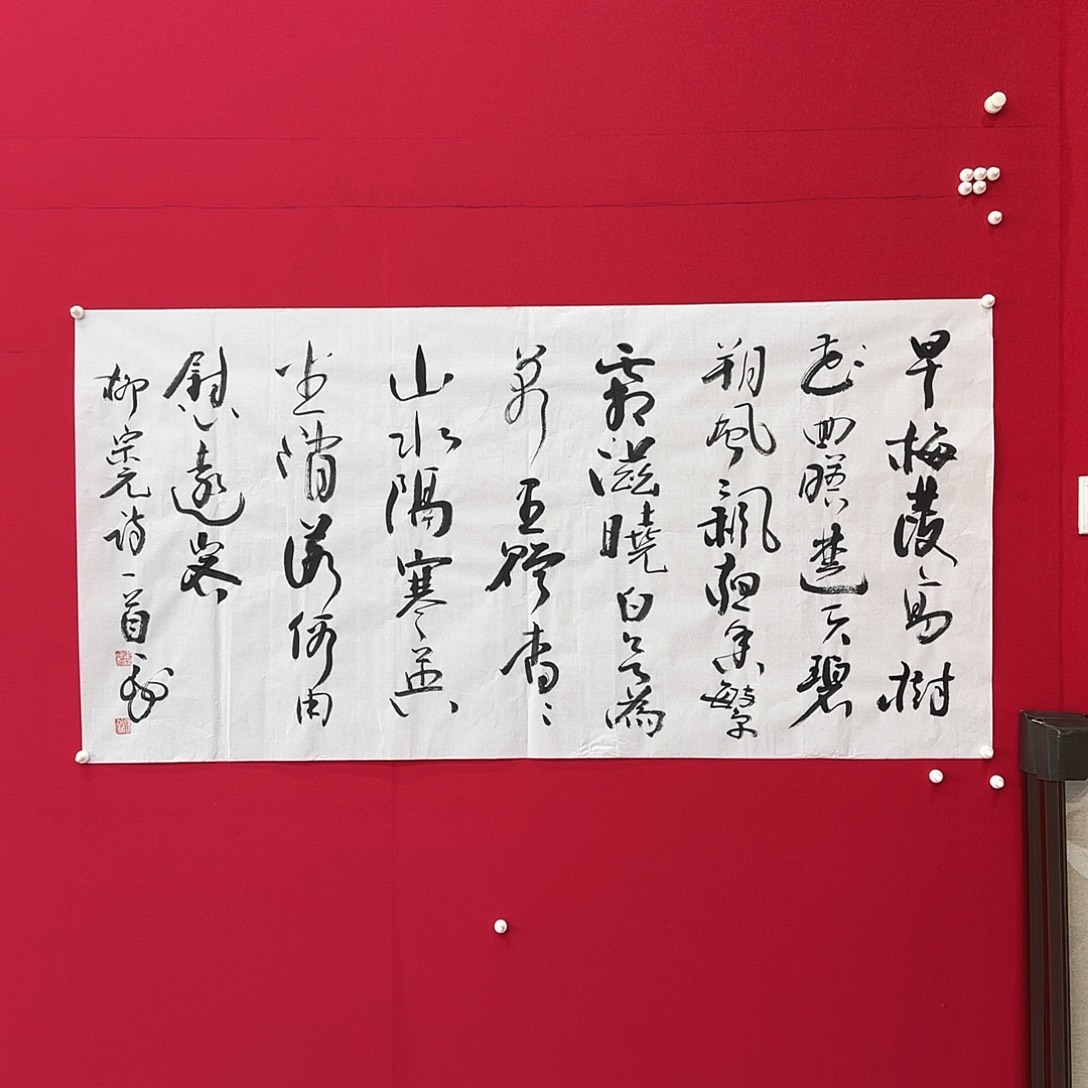 早梅發高樹
回映楚天碧
朔風飄夜香繁
霜滋曉白欲為
萬里贈杳々
山水隔寒英
坐消落何用
慰遠客
柳宗元詩一首